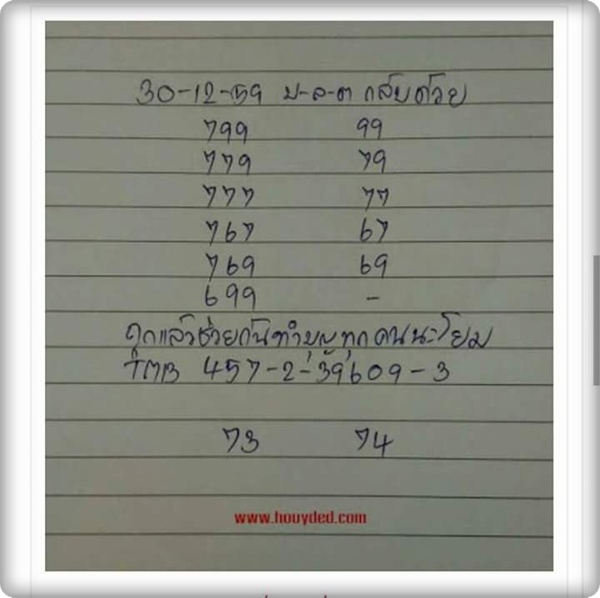 30-12-59 บ-ล-ต กลับด้วย
799 99
779 79
777 77
767 67
769 69
699 -
ถูกแล้วช่วยกันทำบุญทุกคนนะโยม
TMB 457-2-39609-3
73 74
www.houyded.com